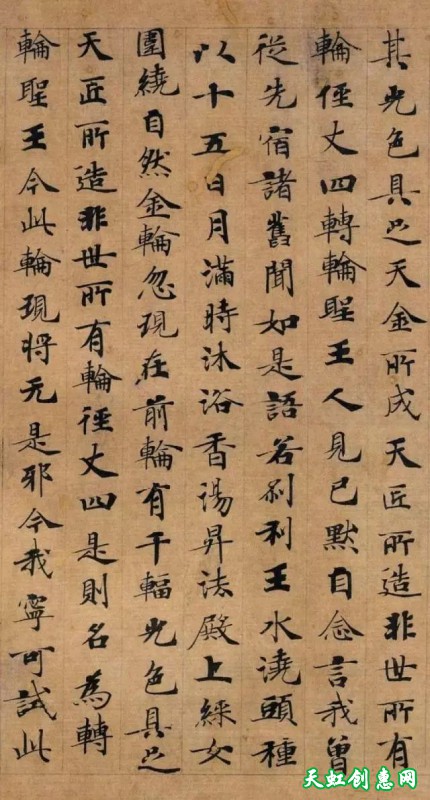 其光色具足天金所成天匠所造非世所有
輪俓丈四轉輪聖王人見已默自念言我曾
從先宿諸舊聞如是語若刹利王水澆頭種
以十五日月滿時沐浴香湯昇法殿上婇女
圍繞自然金輪忽現在前輪有千輻光色具足
天匠所造非世所有輪徑丈四是則名為轉
輪聖王今此輪現將无是邪今我寧可試此
天虹创惠网